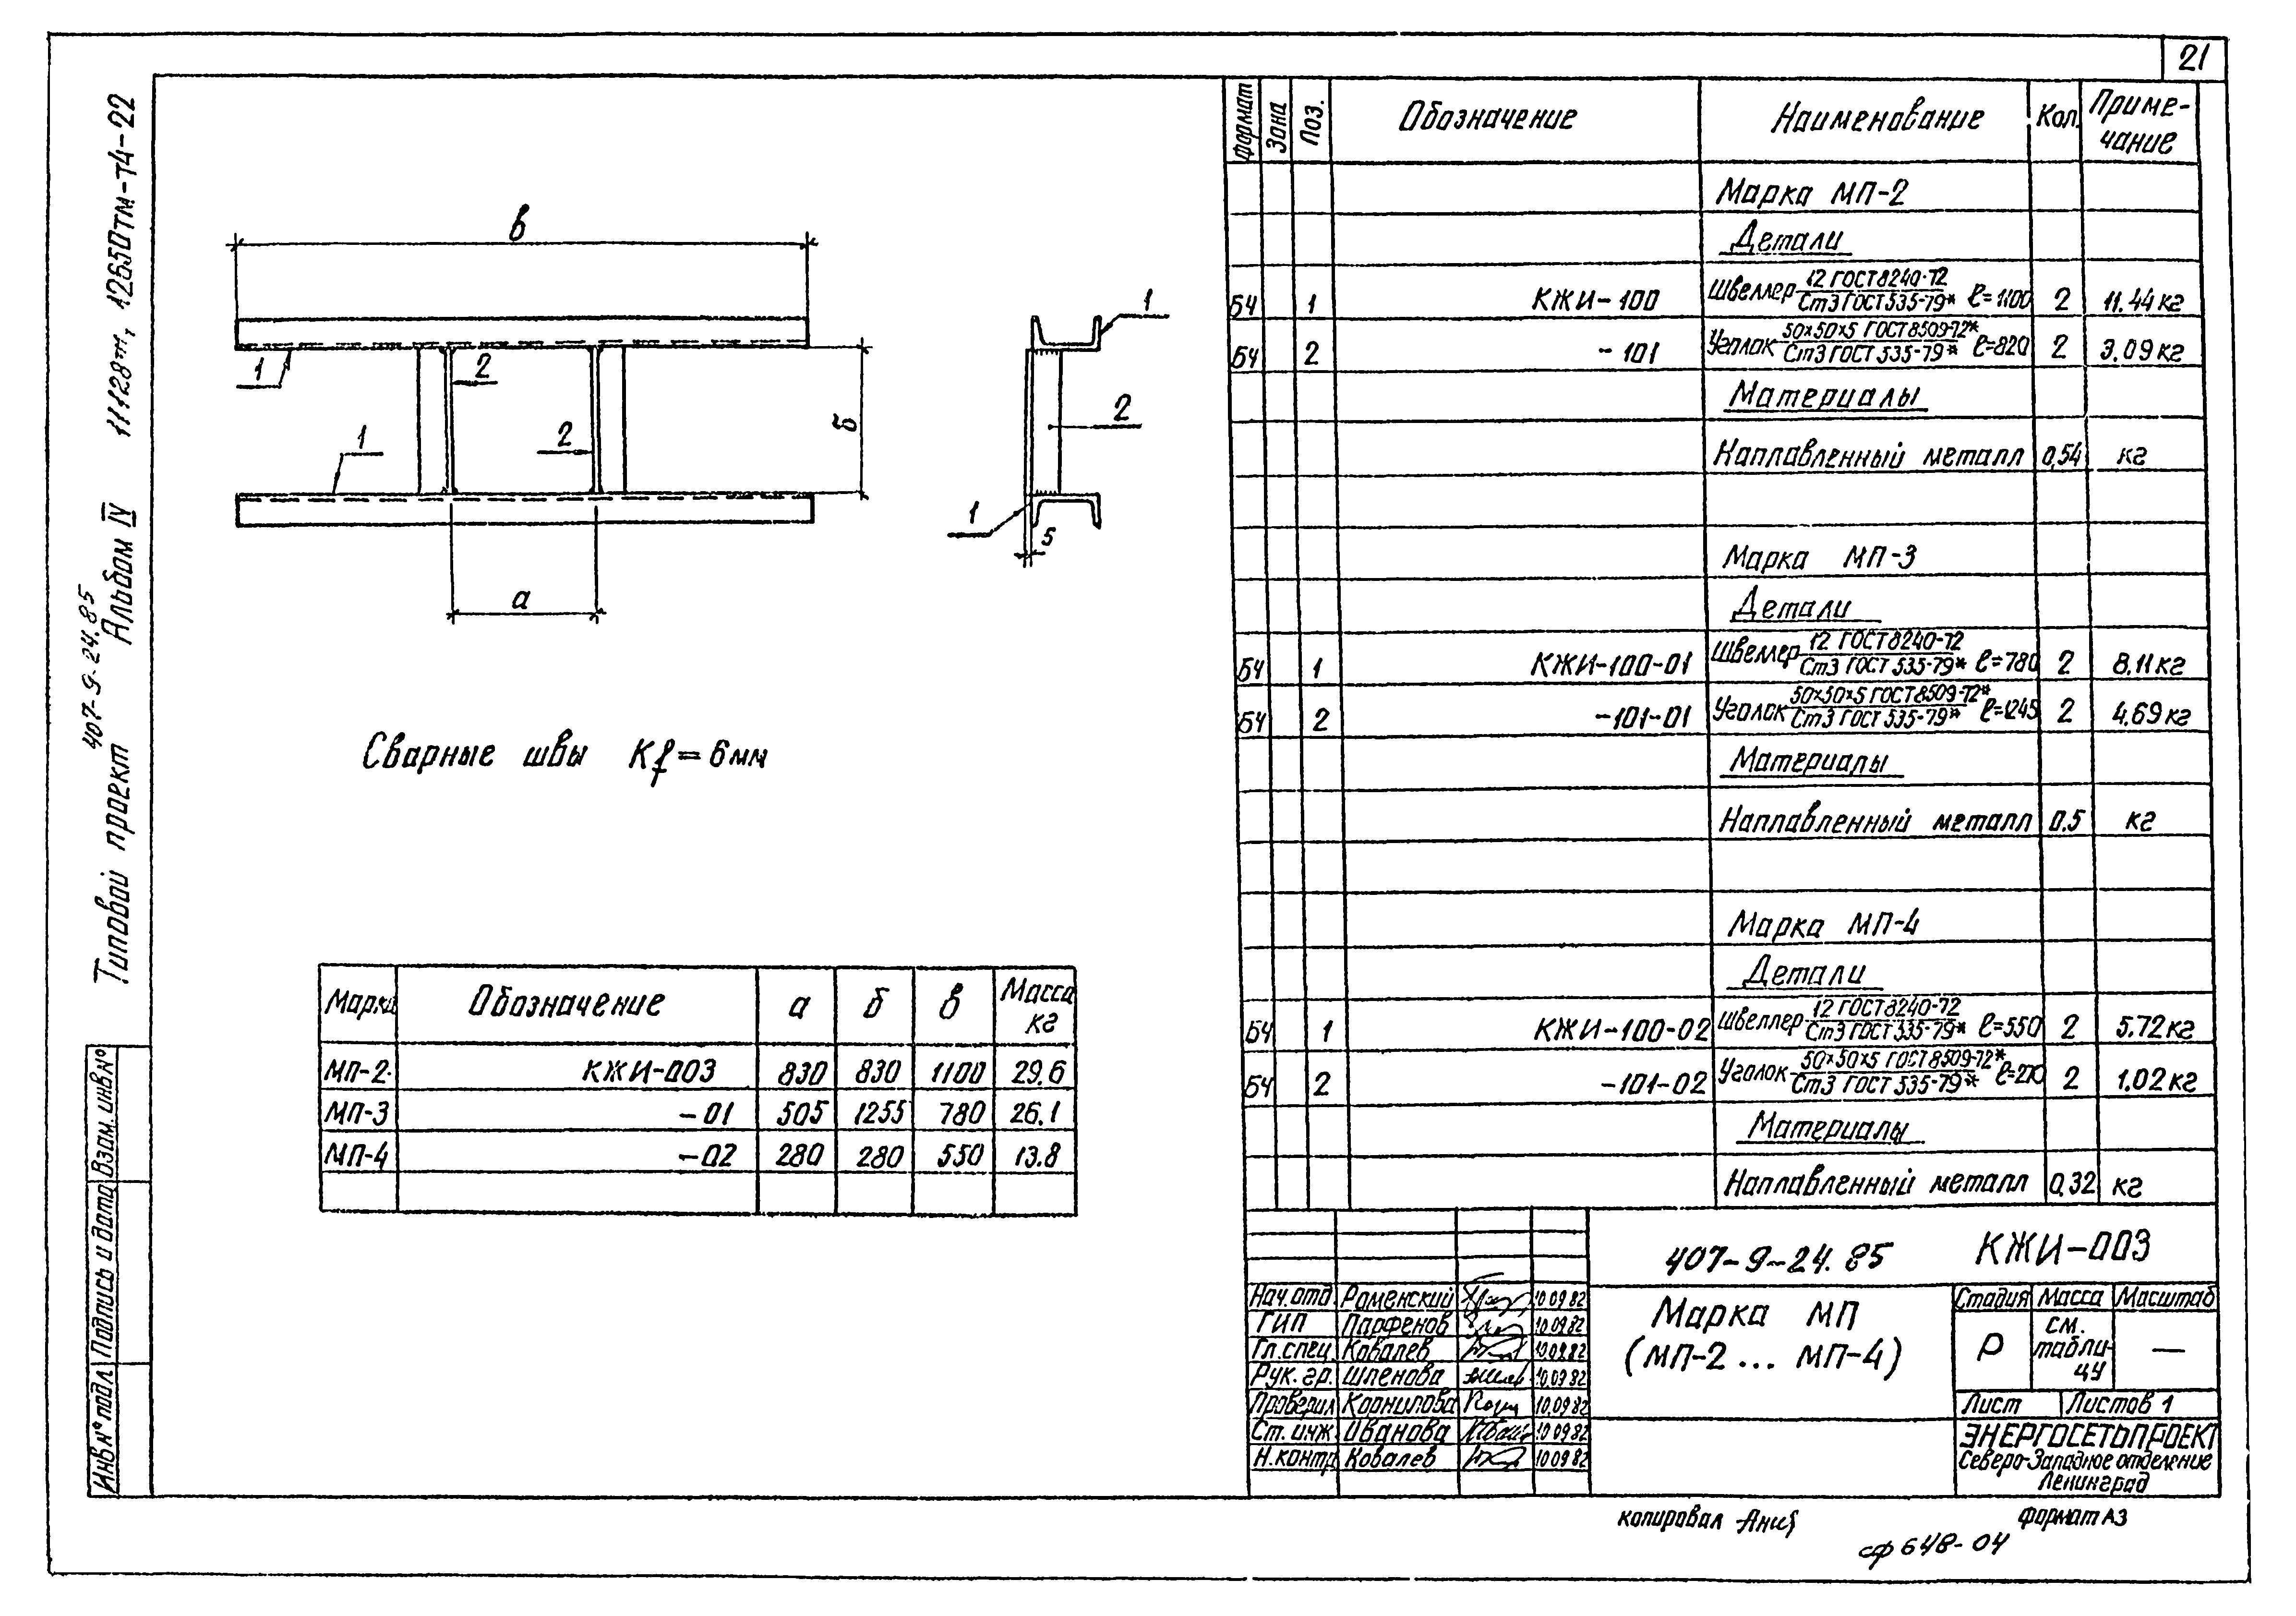 21
Типовой проект 407-9-24.85 Альбом IV 11128т, 12650тм-т4-22
Инв.№ подл. Подпись и дата Взам. инв.№
в
1
2
1
2
б
а
1
2
1
5
Сварные швы Kf = 6мм
Марка Обозначение а б в Масса кг
МП-2 КЖИ-003 830 830 1100 29.6
МП-3 -01 505 1255 780 26.1
МП-4 -02 280 280 550 13.8
Формат Зона Поз. Обозначение Наименование Кол. Приме-
чание
Марка МП-2
Детали
БЧ 1 КЖИ-100 Швеллер 12 ГОСТ 8240-72 / Ст3 ГОСТ 535-79* ℓ=1100 2 11.44 кг
БЧ 2 -101 Уголок 50×50×5 ГОСТ 8509-72* / Ст3 ГОСТ 535-79* ℓ=820 2 3.09 кг
Материалы
Наплавленный металл 0,54 кг
Марка МП-3
Детали
БЧ 1 КЖИ-100-01 Швеллер 12 ГОСТ 8240-72 / Ст3 ГОСТ 535-79* ℓ=780 2 8.11 кг
БЧ 2 -101-01 Уголок 50×50×5 ГОСТ 8509-72* / Ст3 ГОСТ 535-79* ℓ=1245 2 4.69 кг
Материалы
Наплавленный металл 0.5 кг
Марка МП-4
Детали
БЧ 1 КЖИ-100-02 Швеллер 12 ГОСТ 8240-72 / Ст3 ГОСТ 535-79* ℓ=550 2 5.72 кг
БЧ 2 -101-02 Уголок 50×50×5 ГОСТ 8509-72* / Ст3 ГОСТ 535-79* ℓ=270 2 1.02 кг
Материалы
Наплавленный металл 0,32 кг
407-9-24.85 КЖИ-003
Нач.отд. Роменский 10.09.82
ГИП Парфенов 10.09.82
Гл.спец. Ковалев 10.09.82
Рук.гр. Шленова 10.09.82
Проверил Корнилова 10.09.82
Ст.инж. Иванова 10.09.82
Н.контр. Ковалев 10.09.82
Марка МП
(МП-2 ... МП-4)
Стадия Масса Масштаб
Р см. табли-
цу —
Лист Листов 1
ЭНЕРГОСЕТЬПРОЕКТ
Северо-Западное отделение
Ленинград
копировал Формат А3
сф 648-04